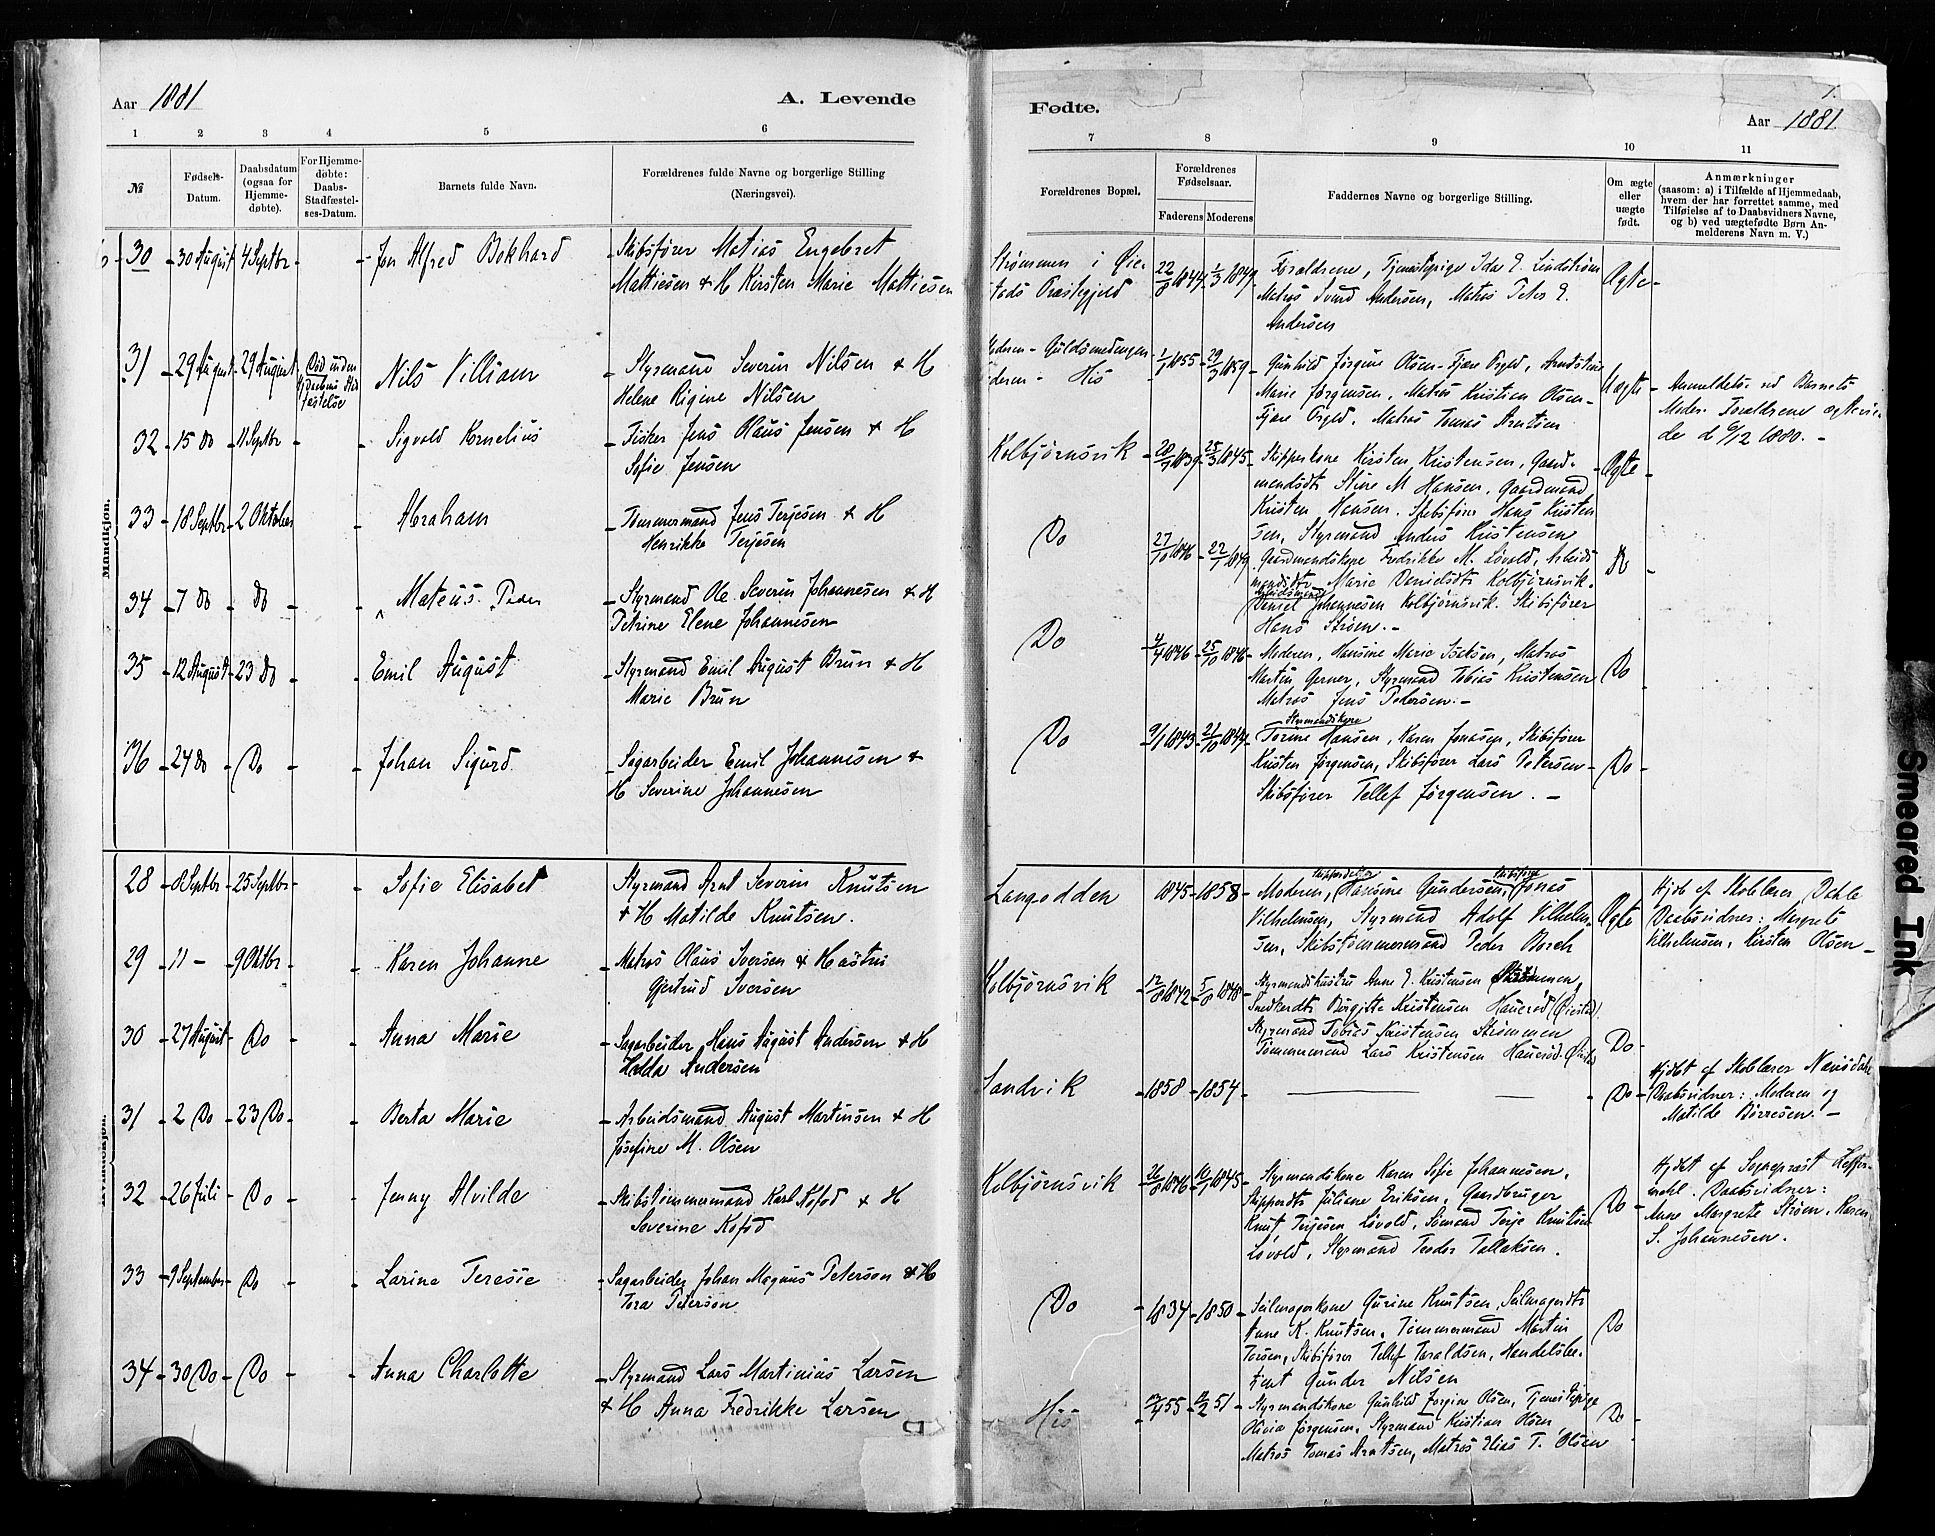 Aar 1881
A. Levende
1 2 3 4 5 6
№
Fødsels-Datum.
Daabsdatum (ogsaa for Hjemme-døbte).
For Hjemme-døbte: Daabs-Stadfæstel-ses-Datum.
Barnets fulde Navn.
Forældrenes fulde Navne og borgerlige Stilling
(Næringsvei).
Mandkjøn.
30 30 August 4 Septbr Jon Alfred Bokhard Skibsfører Matias Engebret
Mattiesen & H Kirsten Marie Mattiesen
31 29 August 29 August Nils Villiam Styrmand Severin Nilsen & H
Helene Rigine Nilsen
32 15 Do 11 Septbr Sigvald Kornelius Fisker Jens Olaus Jensen & H
Sofie Jensen
33 18 Septbr 2 Oktober Abraham Tømmermand Jens Terjesen & H
Henrikke Terjesen
34 7 Do Do Mateus Peder Styrmand Ole Severin Johannesen & H
Petrine Elene Johannesen
35 12 August 23 Do Emil August Styrmand Emil August Brun & H
Marie Brun
36 24 Do Do Johan Sigurd Sagarbeider Emil Johannesen &
H Severine Johannesen
28 8 Septbr 25 Septbr Sofie Elisabet Styrmand Arnt Severin Knutsen
& H Matilde Knutsen.
29 11 - 9 Oktbr Karen Johanne Matros Olaus Iversen & Hustru
Gjertrud Iversen
30 27 August Do Anna Marie Sagarbeider Hans August Andersen & H
Hulda Andersen
31 2 Do 23 Do Berta Marie Arbeidsmand August Martinsen & H
Josefine M. Olsen
32 26 Juli Do Jenny Alvilde Skibstømmermand Karl Kofod & H
Severine Kofod
33 9 September Do Larine Teresie Sagarbeider Johan Magnus Peterson & H
Tora Peterson
34 30 Do Do Anna Charlotte Styrmand Lars Martinius Larsen
& H Anna Fredrikke Larsen
Fødte.
1.
Aar 1881
7 8 9 10 11
Forældrenes Bopæl.
Forældrenes Fødselsaar.
Faderens Moderens
Faddernes Navne og borgerlige Stilling.
Om ægte eller uægte født.
Anmærkninger
(saasom: a) i Tilfælde af Hjemmedaab,
hvem der har forrettet samme, med
Tilføielse af to Daabsvidners Navne,
og b) ved uægtefødte Børn An-
melderens Navn m. V.)
Strømmen i Øie-
stads Præstegjeld
22/8 1844 1/3 1849 Forældrene, Tjenestepige Ida E. Lindstrøm
Matros Svend Andersen, Matros Peter E.
Andersen
Ægte
Moderen - Guldsmedengen
Faderen - His
1/1 1855 29/3 1859 Gunhild Jørgine Olsen - Fjære Prgld,
Marie Jørgensen, Matros Kristian Olsen -
Fjære Prgld. Matros Tomas Arntsen
Uægte
Anmeldets. ved Barnets
Moder. Forældrene ægtevie-
de d 6/12 1880. -
Kolbjørnsvik 20/7 1839 25/3 1845 Skipperkone Kirsten Kristensen, Gaard-
mandsdt Stine M Hansen, Gaardmand
Kristen Hansen. Skibsfører Hans Kristen
sen, Styrmand Anders Kristensen
Ægte
Do 27/10 1846 22/7 1849 Gaardmandskone Fredrikke M. Løvold, Arbeids
mandsdtr Marie Danielsdt Kolbjørnsvik.
Arbeidsmand
Daniel Johannesen Kolbjørnsvik. Skibsfører
Hans Strøm. -
Do
Do 4/7 1846 25/10 1846 Moderen, Hansine Marie Isaksen, Matros
Martin Gerner, Styrmand Tobias Kristensen
Matros Jens Petersen. -
Do
Do 9/1 1843 21/10 1849 Styrmandskone
Torine Hansen, Karen Jonasen, Skibsfører
Kristen Jørgensen, Skibsfører Lars Petersen -
Skibsfører Tellef Jørgensen. -
Do
Langodden 1845 - 1858 Moderen, Hansine Gundersen, Jonas
Vilhelmsen, Styrmand Adolf Vilhelm-
sen, Skibstømmermand Peder Borch
Ægte
Hjdb af Skolelærer Dahle
Daabsvidner: Margrete
Vilhelmsen, Kirsten Olsen -
Kolbjørnsvik 12/8 1842 5/8 1848 Styrmandshustru Anne E. Kristensen Strømmen,
Snedkerdt Bergitte Kristensen Hauerød (Øiestad).
Styrmand Tobias Kristensen Strømmen
Tømmermand Lars Kristensen Hauerød (Øiestad
Do
Sandvik 1858 - 1854
Do
Hjdbt af Skolelærer Næsdahl
Daabsvidner: Moderen og
Matilde Børresen. -
Kolbjørnsvik 26/8 1846 10/1 1845 Styrmandskone Karen Sofie Johannesen,
Skipperdt Juliane Eriksen, Gaardbruger
Knut Terjesen Løvold, Sømand Terje Knutsen
Løvold, Styrmand Teodor Tallaksen.
Do
Hjdbt af Sogneprest Heffer-
mehl. Daabsvidner:
Anne Margrete Strøm, Karen
S. Johannesen.
Do 1834 - 1850 Seilmagerkone Gurine Knutsen, Seilmagerdt
Anne K. Knutsen, Tømmermand Martin
Torsen, Skibsfører Tellef Taraldsen, Handelsbe-
tjent Gunder Nilsen
Do
His 55 51 Styrmandskone Gunhild Jorgine Olsen, Tjenestepige
Olivia Jørgensen, Styrmand Kristian Olsen
Matros Tomas Arntsen, Matros Elias T. Olsen
Do
Smeared Ink